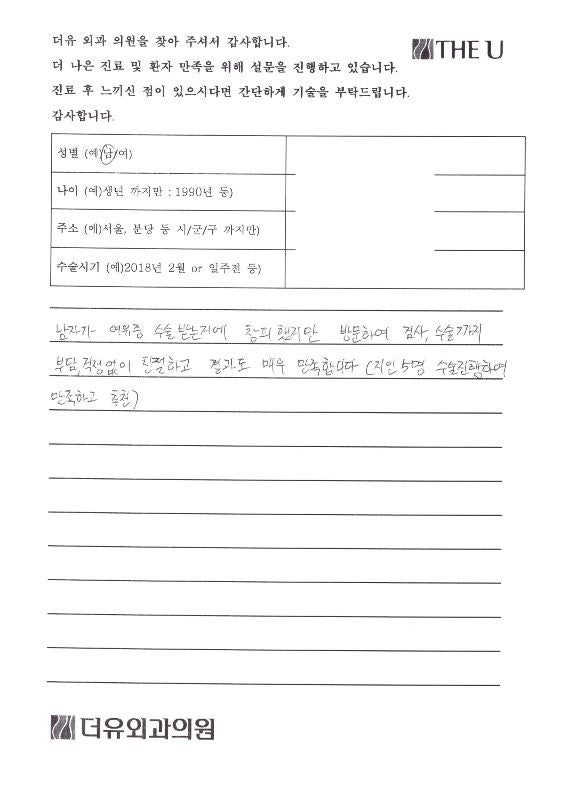 더유 외과 의원을 찾아 주셔서 감사합니다.
THE U
더 나은 진료 및 환자 만족을 위해 설문을 진행하고 있습니다.
진료 후 느끼신 점이 있으시다면 간단하게 기술을 부탁드립니다.
감사합니다.
성별 (예)남/여)
나이 (예)생년 까지만 : 1990년 등)
주소 (예)서울, 분당 등 시/군/구 까지만)
수술시기 (예)2018년 2월 or 일주전 등)
남자가 여유증 수술 받는거에 창피했지만 방문하여 검사, 수술까지
부담,걱정없이 친절하고 결과도 매우 만족합니다 (지인 5명 수술진행하여
만족하고 추천)
더유외과의원